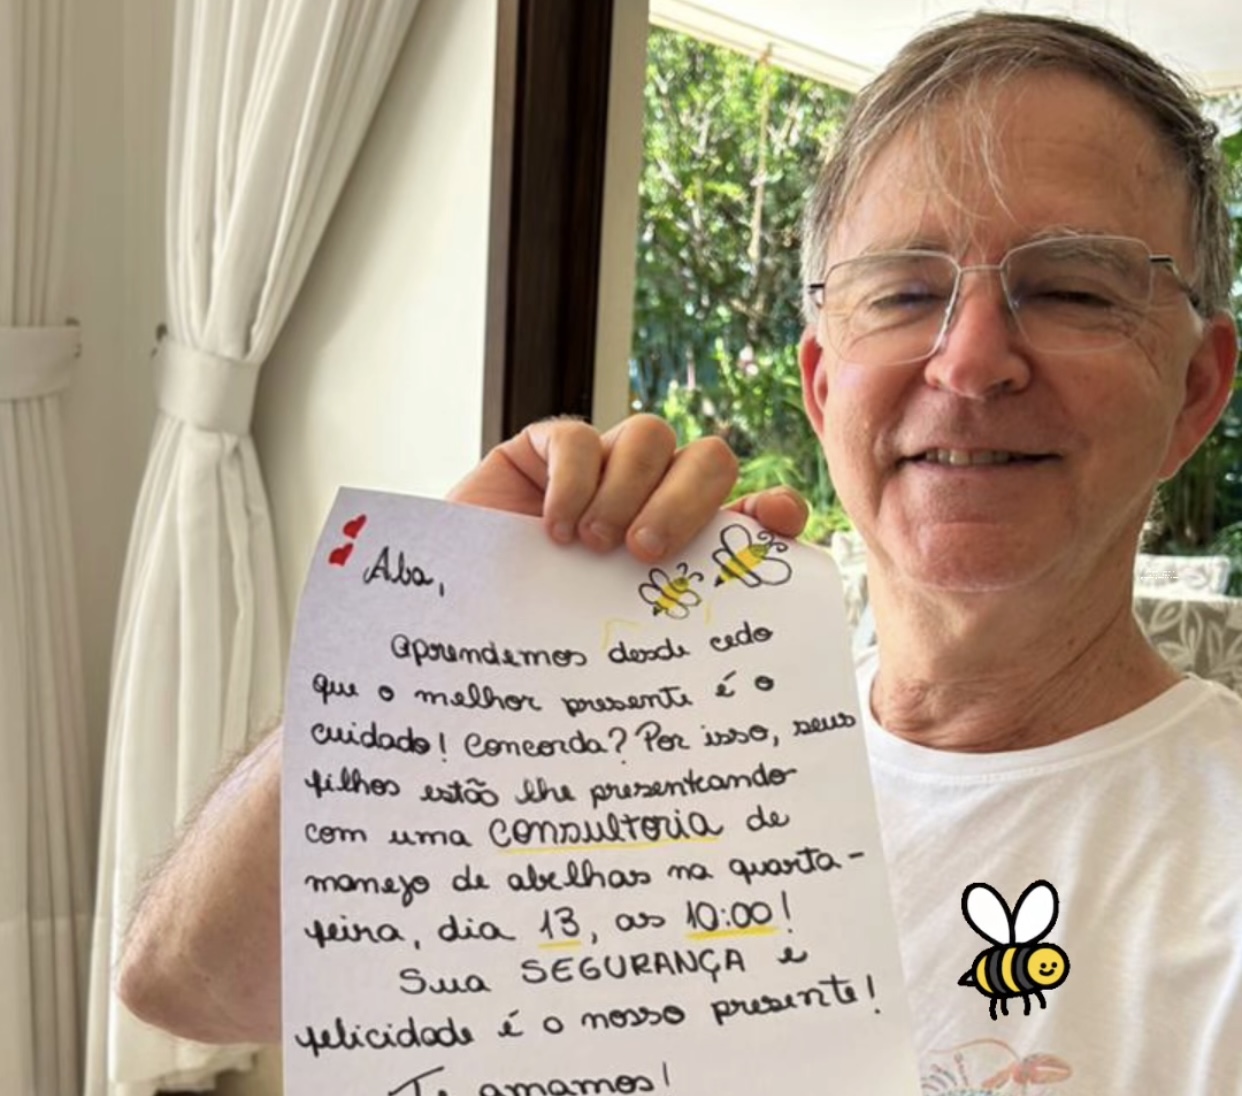 Aba,
Aprendemos desde cedo
que o melhor presente é o
cuidado! Concorda? Por isso, seus
filhos estão lhe presenteando
com uma consultoria de
manejo de abelhas na quarta-
feira, dia 13, as 10:00!
Sua SEGURANÇA e
felicidade é o nosso presente!
Te amamos!